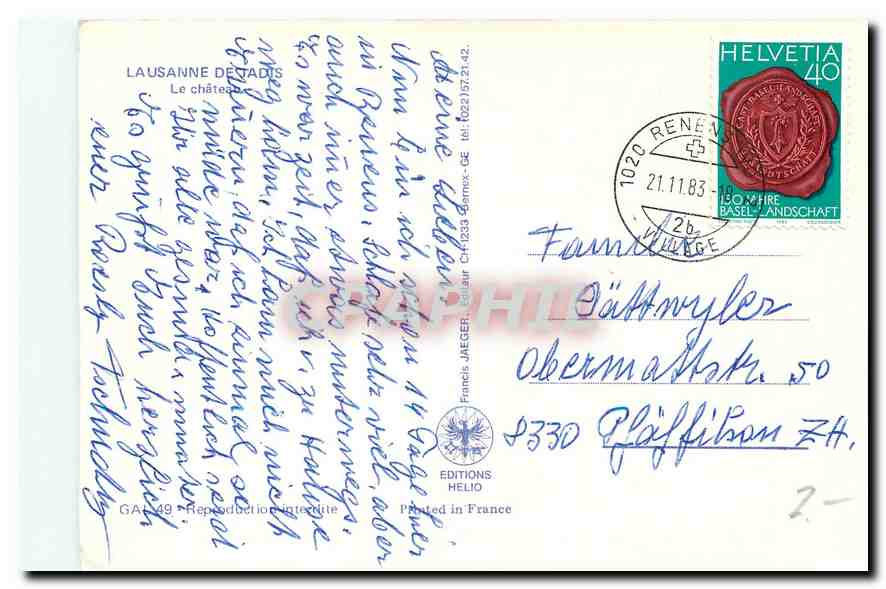 LAUSANNE DE JADIS
Le château
Meine Lieben!
Nun bin ich schon 14 Tage hier
in Renens, schlafe sehr viel, aber
auch immer etwas unterwegs.
Es war Zeit, daß ich v. zu Hause
weg kam. Ich kann mich nicht
erinnern, daß ich einmal so
müde war. Hoffentlich seid
Ihr alle gesund u. munter.
Es grüßt Euch herzlich
euer Rösly Tschudy
Francis JAEGER, Editeur CH-1233 Bernex-GE tél: (022) 57.21.42.
EDITIONS
HELIO
GAL 49 - Reproduction interdite
Printed in France
HELVETIA
40
150 JAHRE
BASEL-LANDSCHAFT
1020 RENENS
21.11.83 -18
2b
VILLAGE
Familie
Dättwyler
Obermattstr. 50
8330 Pfäffikon ZH.
2.-
CPAPHIL